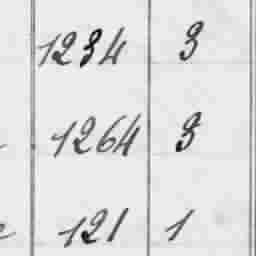 1234 3
1264 3
121 1